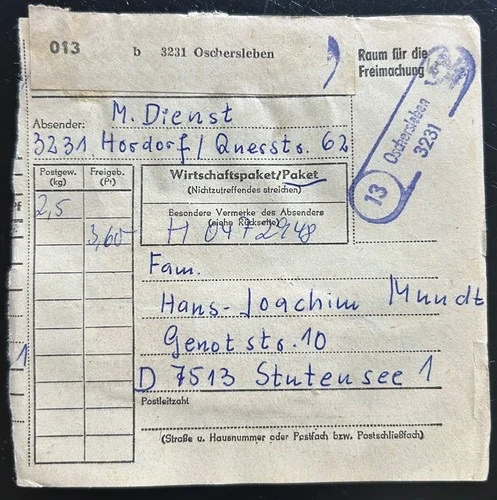 013 b 3231 Oschersleben
Raum für die
Freimachung
Absender: M. Dienst
3231 Hordorf / Querstr. 62
Oschersleben
3231
13
Postgew.
(kg)
Freigeb.
(Pf)
2,5
3,60
Wirtschaftspaket/Paket
(Nichtzutreffendes streichen)
Besondere Vermerke des Absenders
(siehe Rückseite)
H 0472948
Fam.
Hans-Joachim Mundt
Genotstr. 10
D 7513 Stutensee 1
Postleitzahl
(Straße u. Hausnummer oder Postfach bzw. Postschließfach)
1